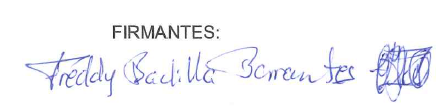 FIRMANTES:
Freddy Badilla Barrantes